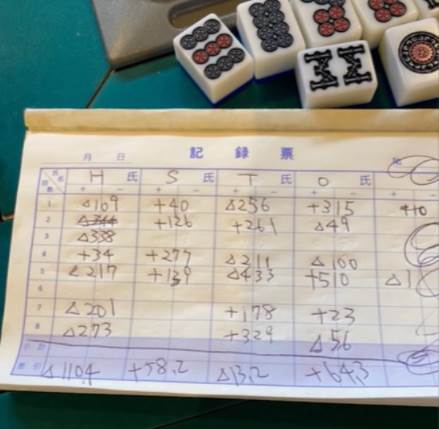 記録票
月 日
氏名 回数 H 氏 S 氏 T 氏 O 氏
+ − + − + − + − + −
1 △109 +40 △256 +315 +10
2 △344 +126 +261 △49
3 △338
4 +34 +277 △211 △100
5 △217 +139 △433 +510 △1
6
7 △201 +178 +23
8 △273 +329 △56
△110.4 +58.2 △13.2 +64.3